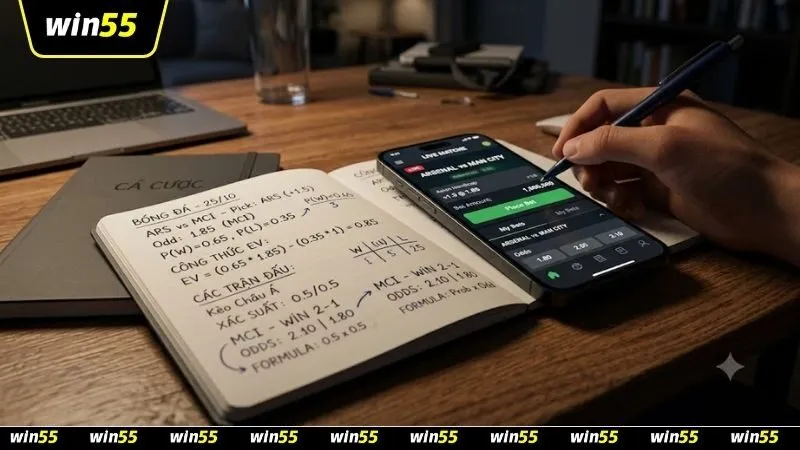 win55
CÁ CƯỢC
BÓNG ĐÁ - 25/10
ARS vs MCI - Pick: ARS (+1.5)
Odd: 1.85 (MCI)
P(W)=0.65, P(L)=0.35
P(W)=0.65
3
CÔNG THỨC EV:
EV = (0.65*1.85) - (0.35*1) = 0.85
CÁC TRẬN ĐẤU:
Kèo Châu Á
XÁC SUẤT: 0.5/0.5
MCI - WIN 2-1
ODDS: 2.10 | 1.80
FORMULA: 0.5 x 0.5
MCI - WIN 2-1
ODDS: 2.10 | 1.80
FORMULA: Prob x Odd
LIVE MATCHE
LIVE
ARSENAL vs MAN CITY
Asian Handicap
+1.5 @ 1.85
Bet Amount:
1,000,000
Place Bet
My Bets
My Bets
ARSENAL vs MAN CITY
Odds
1.80
2.05
2.10
win55 win55 win55 win55 win55 win55 win55 win55 win55 win55